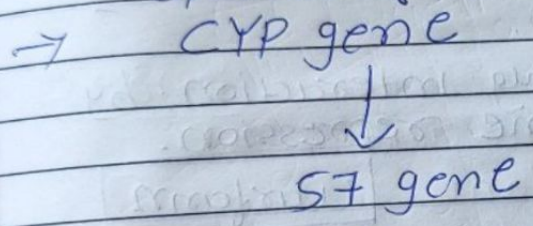 → CYP gene
↓
57 gene